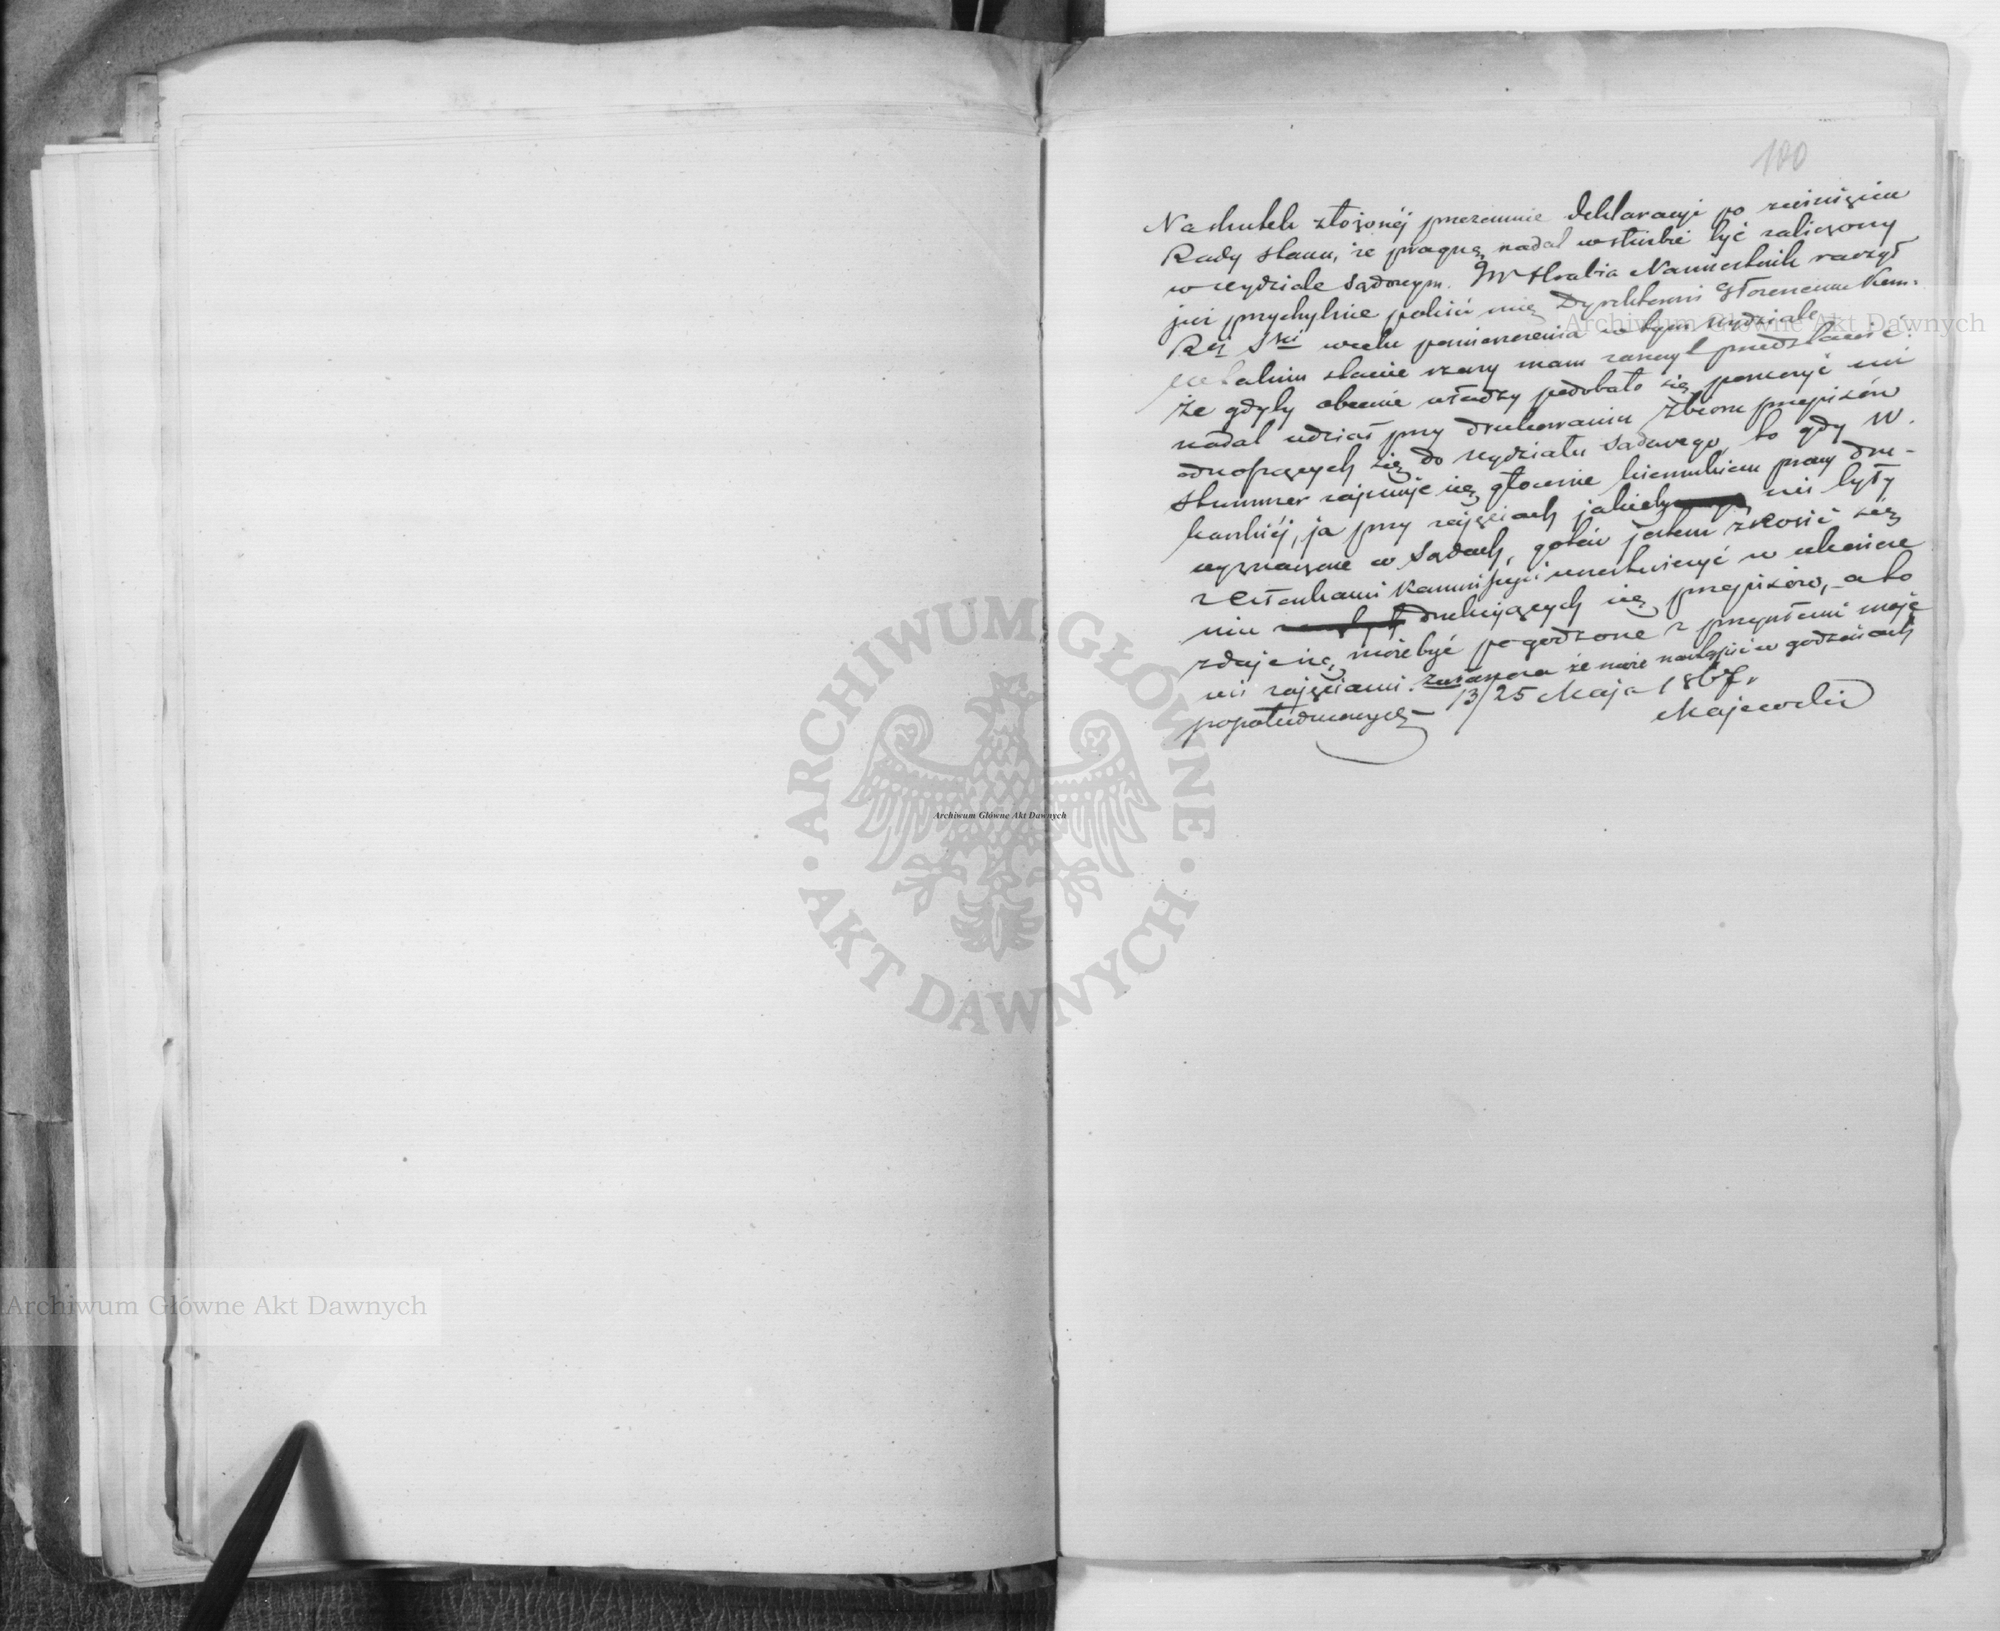 100
Na skutek złożonéj przezemnie deklaracyi po zwinięciu
Rady stanu, że pragnę nadal w służbie być zaliczony
w wydziale Sądowym. JW Hrabia Namiestnik raczył
już przychylnie polecić mię Dyrektorowi Głównemu Kom.
Rzą Spr celu pomieszczenia w tym wydziale
W takim stanie rzeczy mam zaszczyt przedstawić:
że gdyby obecnie władzy podobało się poruczyć mi
nadal udział przy drukowaniu Zbioru przepisów
odnoszących się do wydziału Sądowego, to gdy W.
Stummer zajmuje się głównie kierunkiem pracy dru-
karskiéj, ja przy zajęciach jakieby mi były
wyznaczone w Sądach, gotów jestem znosić się
z Członkami Kommissyi i uczestniczyć w ukończe
niu drukujących się przepisów, a to
zdaje się, może być pogodzone z przyszłemi moje
mi zajęciami. że może nastąpić w godzinach
popołudniowych
13/25 Maja 1867 r
Majewski
Archiwum Główne Akt Dawnych
ARCHIWUM GŁÓWNE
AKT DAWNYCH
Archiwum Główne Akt Dawnych
Archiwum Główne Akt Dawnych